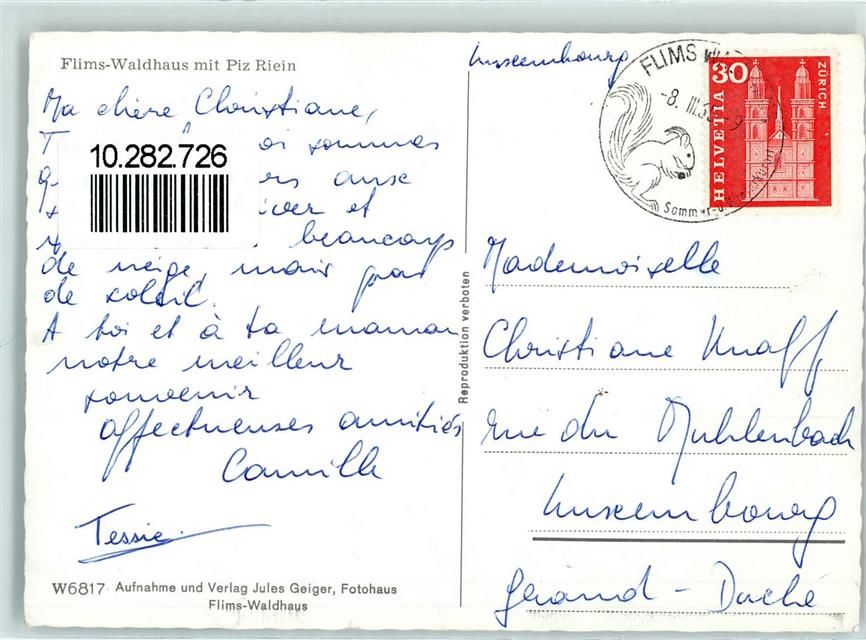 Flims-Waldhaus mit Piz Riein
Ma chère Christiane,
sommes
10.282.726
et
beaucoup
de neige, mais pas
de soleil.
A toi et à ta maman
notre meilleur
souvenir
affectueuses amitiés
Camille
Tessie
W6817 Aufnahme und Verlag Jules Geiger, Fotohaus
Flims-Waldhaus
Reproduktion verboten
Luxembourg
FLIMS
-8. III.
Sommer-
30
HELVETIA
ZÜRICH
Mademoiselle
Christiane Knaff
rue du Muhlenbach
Luxembourg
Grand-Duché